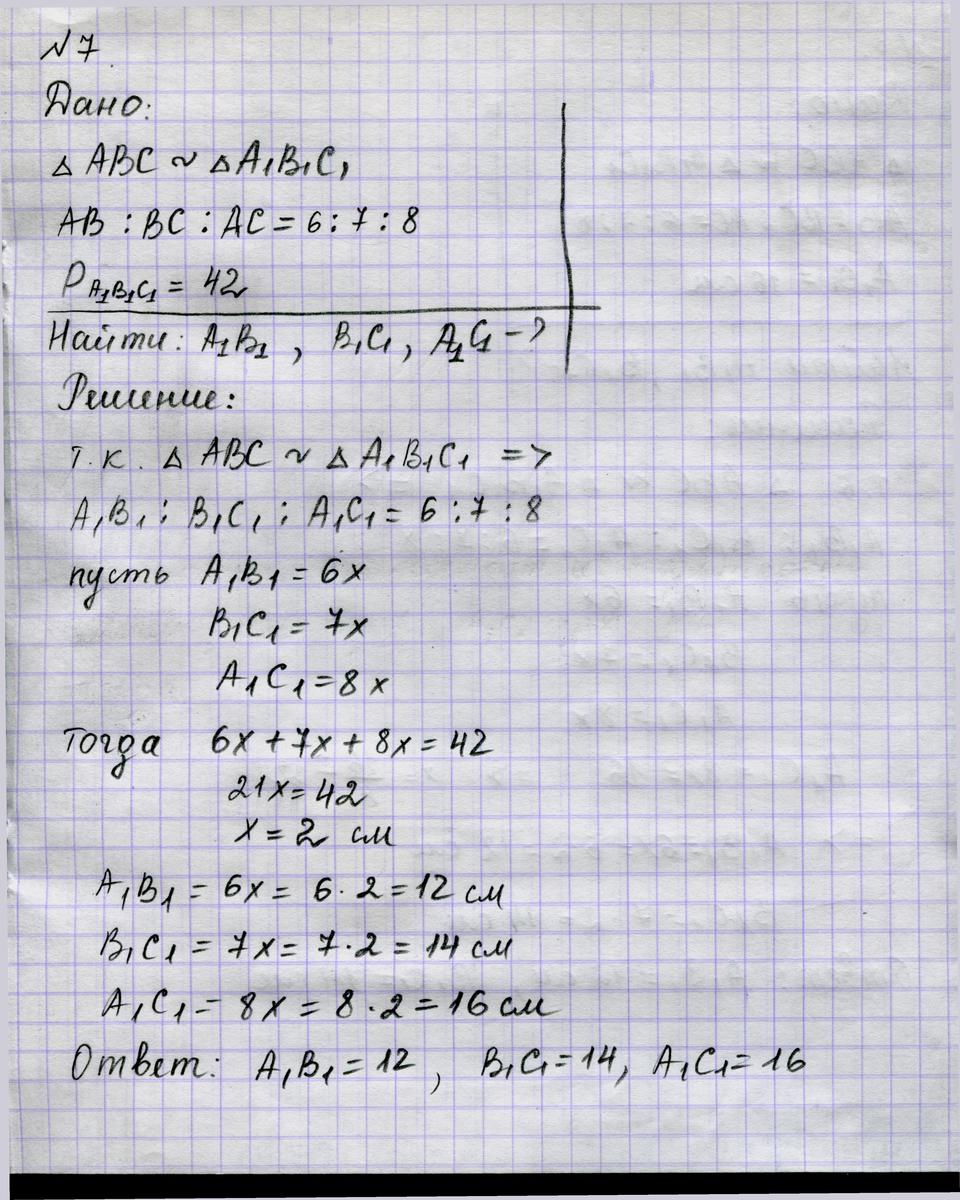 №7
Дано:
△ ABC ~ △ A₁B₁C₁
AB : BC : AC = 6 : 7 : 8
P A₁B₁C₁ = 42
Найти: A₁B₁ , B₁C₁ , A₁C₁ - ?
Решение:
т.к. △ ABC ~ △ A₁B₁C₁ =>
A₁B₁ : B₁C₁ : A₁C₁ = 6 : 7 : 8
пусть A₁B₁ = 6x
B₁C₁ = 7x
A₁C₁ = 8x
Тогда 6x + 7x + 8x = 42
21x = 42
x = 2 см
A₁B₁ = 6x = 6 · 2 = 12 см
B₁C₁ = 7x = 7 · 2 = 14 см
A₁C₁ = 8x = 8 · 2 = 16 см
Ответ: A₁B₁ = 12 , B₁C₁ = 14, A₁C₁ = 16